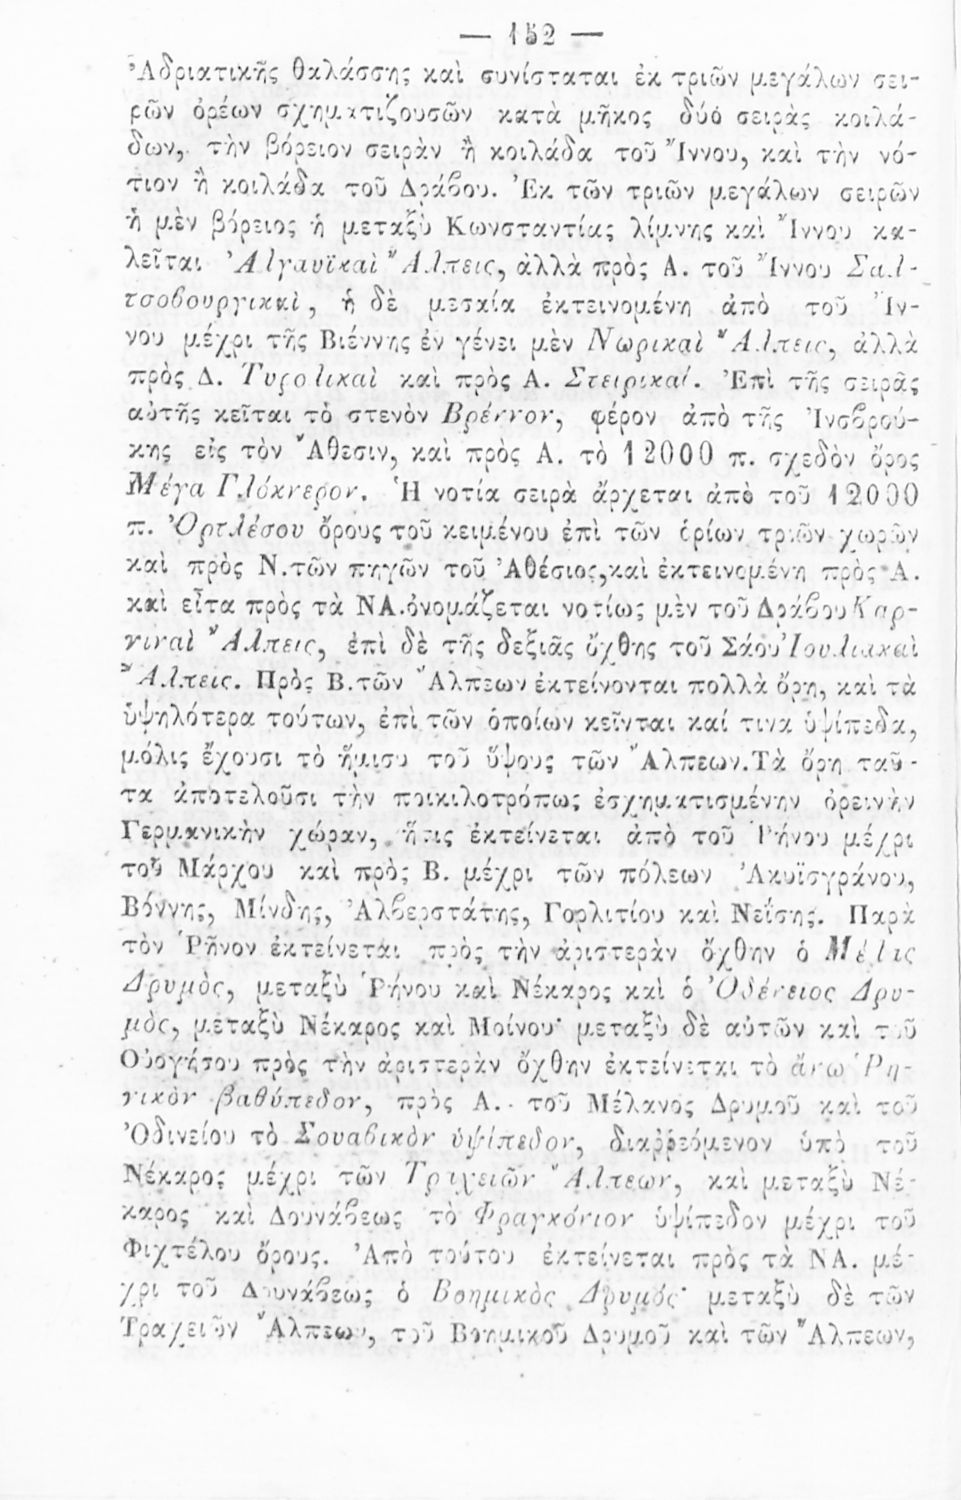 — 152 —
Ἀδριατικῆς θαλάσσης καὶ συνίσταται ἐκ τριῶν μεγάλων σει-
ρῶν ὀρέων σχηματιζουσῶν κατὰ μῆκος δύο σειρὰς κοιλά-
δων, τὴν βόρειον σειρὰν ἢ κοιλάδα τοῦ Ἴννου, καὶ τὴν νό-
τιον ἢ κοιλάδα τοῦ Δράβου. Ἐκ τῶν τριῶν μεγάλων σειρῶν
ἡ μὲν βόρειος ἡ μεταξὺ Κωνσταντίας λίμνης καὶ Ἴννου κα-
λεῖται Ἀλγαυϊκαὶ Ἄλπεις, ἀλλὰ πρὸς Α. τοῦ Ἴννου Σαλ-
τσοβουργικαὶ, ἡ δὲ μεσαία ἐκτεινομένη ἀπὸ τοῦ Ἴν-
νου μέχρι τῆς Βιέννης ἐν γένει μὲν Νωρικαὶ Ἄλπεις, ἀλλὰ
πρὸς Δ. Τυρολικαὶ καὶ πρὸς Α. Στειρικαί. Ἐπὶ τῆς σειρᾶς
αὐτῆς κεῖται τὸ στενὸν Βρέννον, φέρον ἀπὸ τῆς Ἰνσβρού-
κης εἰς τὸν Ἄθεσιν, καὶ πρὸς Α. τὸ 12000 π. σχεδὸν ὄρος
Μέγα Γλόκνερον. Ἡ νοτία σειρὰ ἄρχεται ἀπὸ τοῦ 12000
π. Ὀρτλέσου ὄρους τοῦ κειμένου ἐπὶ τῶν ὁρίων τριῶν χωρῶν
καὶ πρὸς Ν.τῶν πηγῶν τοῦ Ἀθέσιος,καὶ ἐκτεινομένη πρὸς Α.
καὶ εἶτα πρὸς τὰ ΝΑ.ὀνομάζεται νοτίως μὲν τοῦ Δράβου Καρ-
νικαὶ Ἄλπεις, ἐπὶ δὲ τῆς δεξιᾶς ὄχθης τοῦ Σάου Ἰουλιακαὶ
Ἄλπεις. Πρὸς Β.τῶν Ἄλπεων ἐκτείνονται πολλὰ ὄρη, καὶ τὰ
ὑψηλότερα τούτων, ἐπὶ τῶν ὁποίων κεῖνται καί τινα ὑψίπεδα,
μόλις ἔχουσι τὸ ἥμισυ τοῦ ὕψους τῶν Ἄλπεων.Τὰ ὄρη ταῦ-
τα ἀποτελοῦσι τὴν ποικιλοτρόπως ἐσχηματισμένην ὀρεινὴν
Γερμανικὴν χώραν, ἥτις ἐκτείνεται ἀπὸ τοῦ Ῥήνου μέχρι
τοῦ Μάρχου καὶ πρὸς Β. μέχρι τῶν πόλεων Ἀκυϊσγράνου,
Βόννης, Μίνδης, Ἀλβερστάτης, Γορλιτίου καὶ Νείσης. Παρὰ
τὸν Ῥῆνον ἐκτείνεται πρὸς τὴν ἀριστερὰν ὄχθην ὁ Μέλας
Δρυμὸς, μεταξὺ Ῥήνου καὶ Νέκαρος καὶ ὁ Ὀδένειος Δρυ-
μὸς, μεταξὺ Νέκαρος καὶ Μοίνου· μεταξὺ δὲ αὐτῶν καὶ τοῦ
Οὐογήσου πρὸς τὴν ἀριστερὰν ὄχθην ἐκτείνεται τὸ ἄνω Ῥη-
νικὸν βαθύπεδον, πρὸς Α. τοῦ Μέλανος Δρυμοῦ καὶ τοῦ
Ὀδινείου τὸ Σουαβικὸν ὑψίπεδον, διαῤῥεόμενον ὑπὸ τοῦ
Νέκαρος μέχρι τῶν Τραχειῶν Ἄλπεων, καὶ μεταξὺ Νέ-
καρος καὶ Δουνάβεως τὸ Φραγκόνιον ὑψίπεδον μέχρι τοῦ
Φιχτέλου ὄρους. Ἀπὸ τούτου ἐκτείνεται πρὸς τὰ ΝΑ. μέ-
χρι τοῦ Δουνάβεως ὁ Βοημικὸς Δρυμός· μεταξὺ δὲ τῶν
Τραχειῶν Ἄλπεων, τοῦ Βοημικοῦ Δρυμοῦ καὶ τῶν Ἄλπεων,